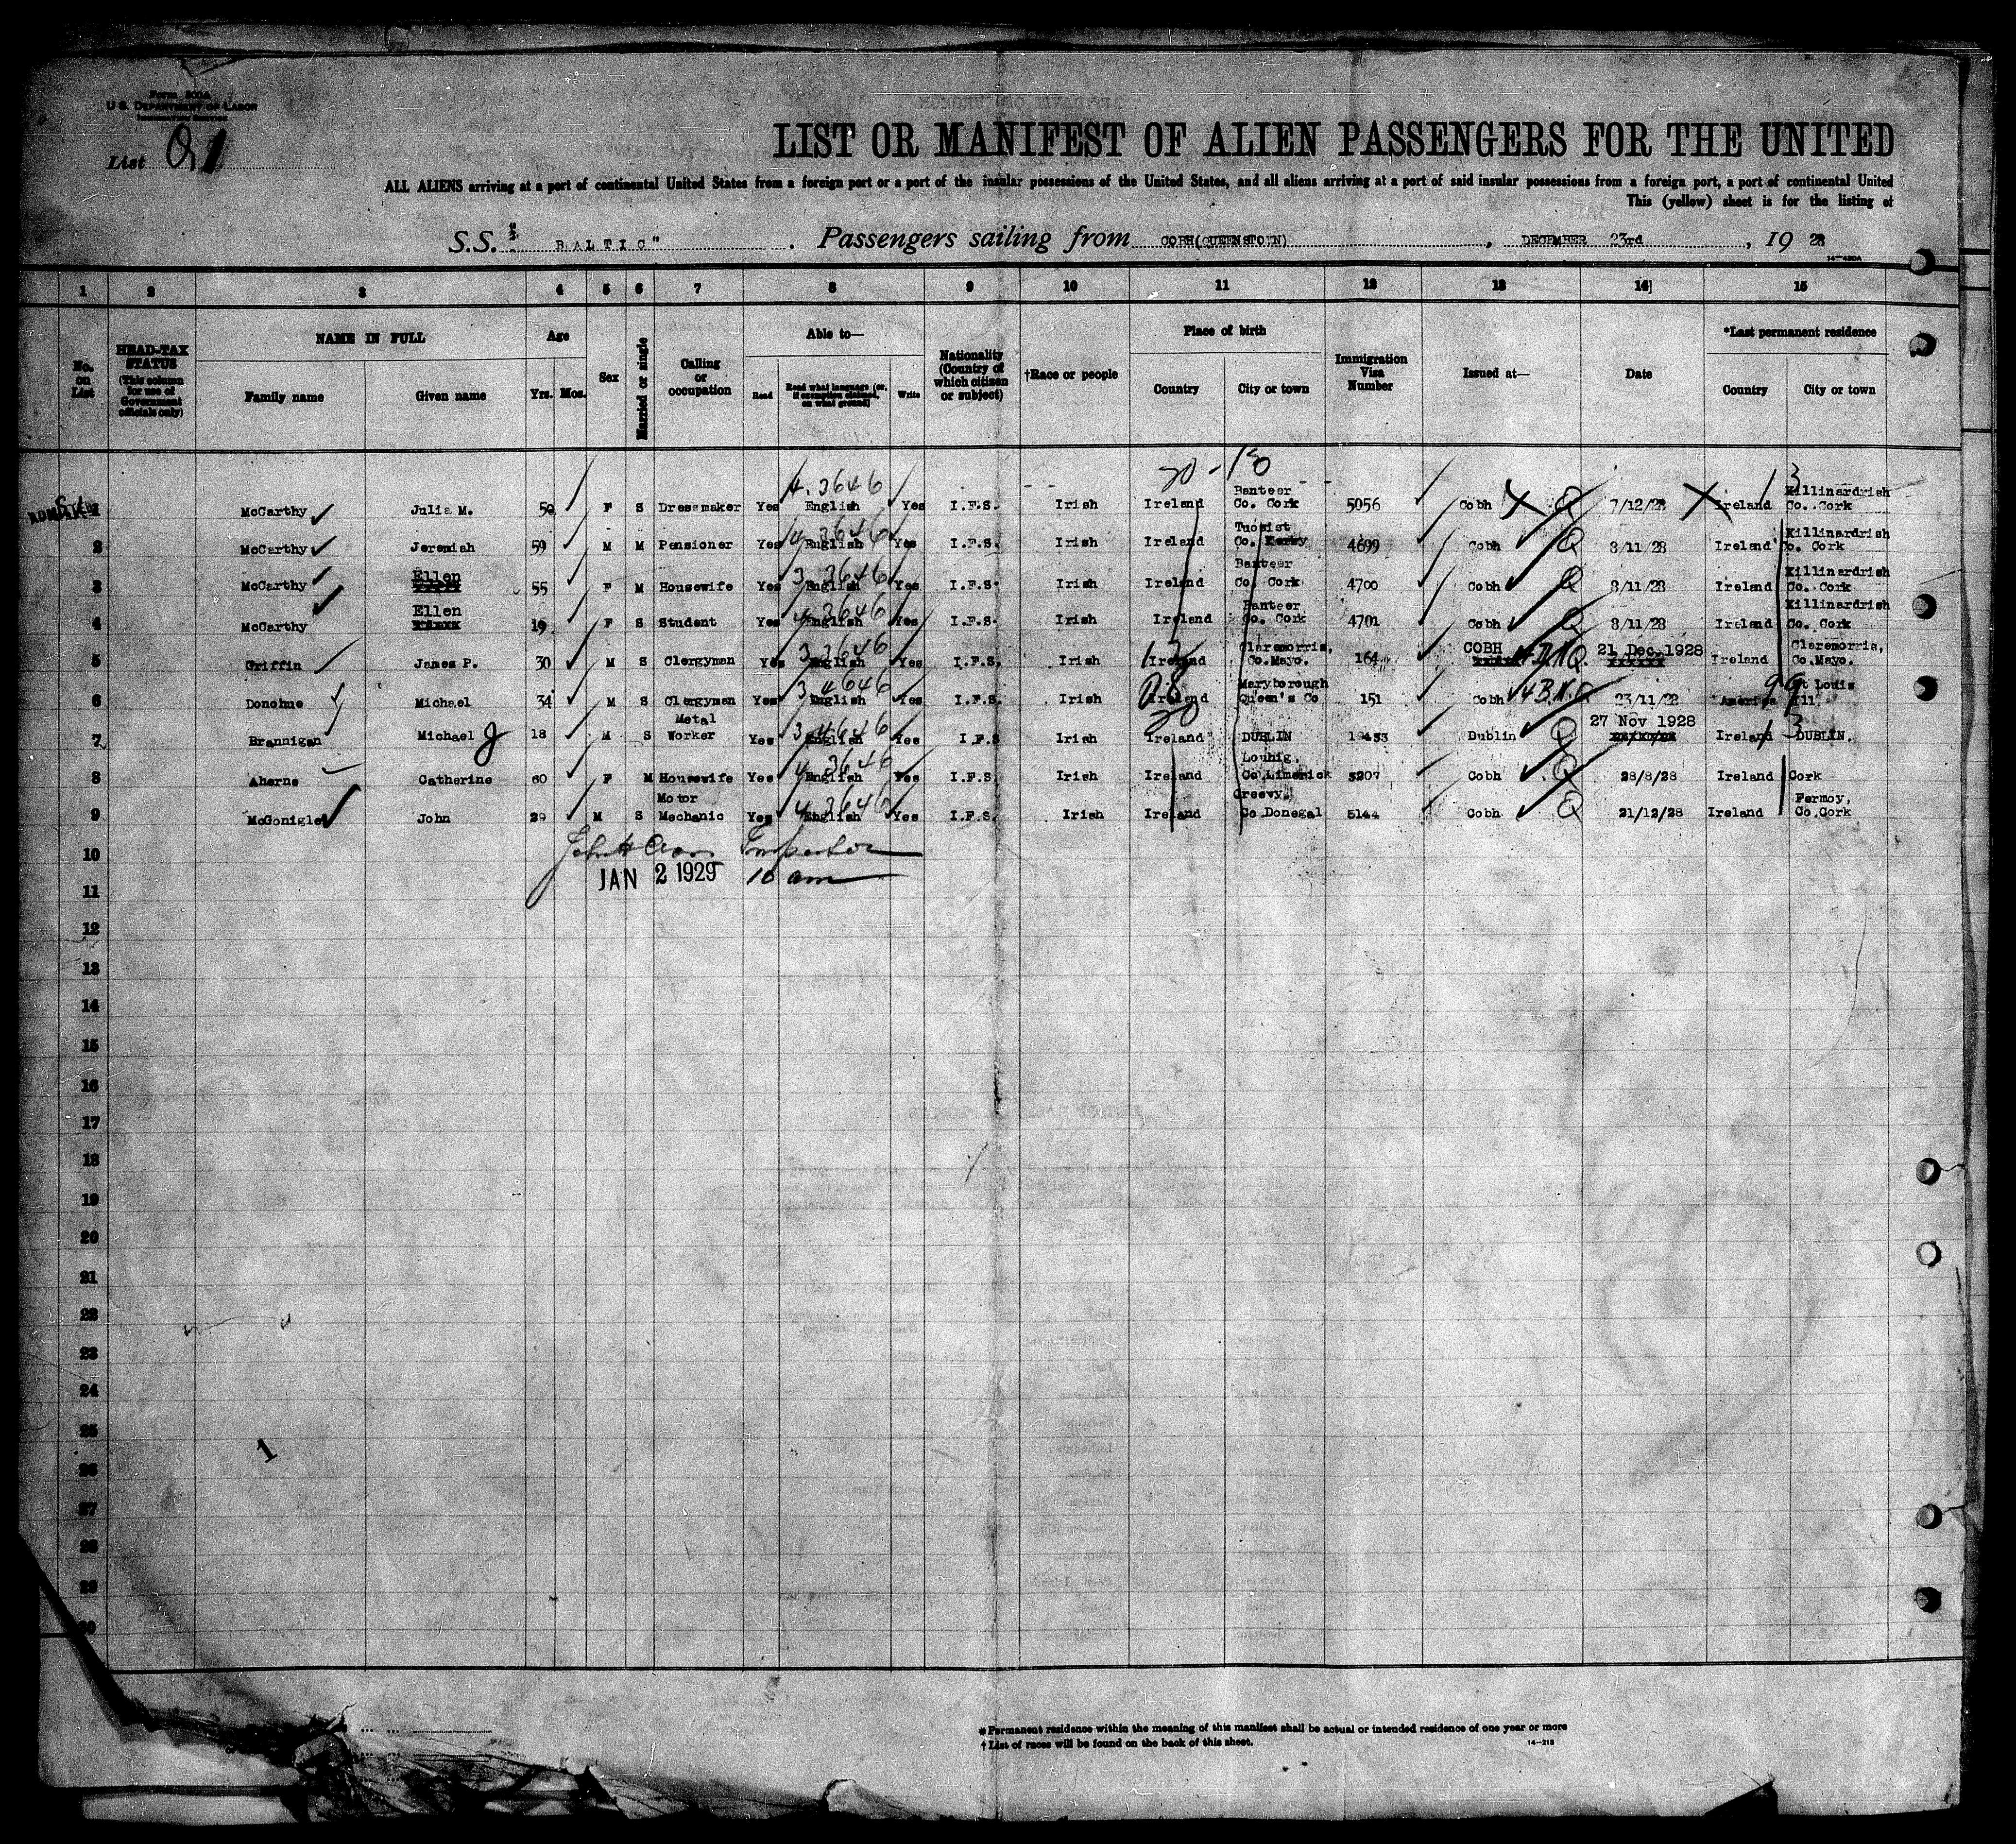 Form 500A
U. S. DEPARTMENT OF LABOR
IMMIGRATION SERVICE
List 1
LIST OR MANIFEST OF ALIEN PASSENGERS FOR THE UNITED
ALL ALIENS arriving at a port of continental United States from a foreign port or a port of the insular possessions of the United States, and all aliens arriving at a port of said insular possessions from a foreign port, a port of continental United
This (yellow) sheet is for the listing of
S.S. "BALTIC" . Passengers sailing from COBH(QUEENSTOWN) , DECEMBER 23rd , 19 28
1 2 3 4 5 6 7 8 9 10 11 12 13 14 15
No. on List
HEAD-TAX STATUS (This column for use of Government officials only)
NAME IN FULL
Family name Given name
Age
Yrs. Mos.
Sex
Married or single
Calling or occupation
Able to—
Read Read what language (or, if exemption claimed, on what ground) Write
Nationality (Country of which citizen or subject)
†Race or people
Place of birth
Country City or town
Immigration Visa Number
Issued at—
Date
*Last permanent residence
Country City or town
ADMITTED
20 - 10
1 McCarthy Julia M. 50 F S Dressmaker Yes English Yes I.F.S. Irish Ireland Banteer Co. Cork 5056 Cobh Q 7/12/28 Ireland Killinardrish Co. Cork
4. 3646
2 McCarthy Jeremiah 59 M M Pensioner Yes English Yes I.F.S. Irish Ireland Tuosist Co. Kerry 4699 Cobh Q 8/11/28 Ireland Killinardrish Co. Cork
3 McCarthy Ellen 55 F M Housewife Yes English Yes I.F.S. Irish Ireland Banteer Co. Cork 4700 Cobh Q 8/11/28 Ireland Killinardrish Co. Cork
4 McCarthy Ellen 19 F S Student Yes English Yes I.F.S. Irish Ireland Banteer Co. Cork 4701 Cobh Q 8/11/28 Ireland Killinardrish Co. Cork
5 Griffin James P. 30 M S Clergyman Yes English Yes I.F.S. Irish Ireland Claremorris, Co.Mayo. 164 COBH Q 21 Dec. 1928 Ireland Claremorris, Co.Mayo.
6 Donohue Michael 34 M S Clergyman Yes English Yes I.F.S. Irish Ireland Maryborough Queen's Co 151 Cobh 23/11/28 America St Louis Ill
7 Brannigan Michael J 18 M S Metal Worker Yes English Yes I.F.S Irish Ireland DUBLIN Dublin Q 27 Nov 1928 Ireland DUBLIN.
8 Aherne Catherine 60 F M Housewife Yes English Yes I.F.S. Irish Ireland Co.Limerick 3207 Cobh Q 28/8/28 Ireland Cork
9 McGonigle John 29 M S Motor Mechanic Yes English Yes I.F.S. Irish Ireland Creevy, Co.Donegal 5144 Cobh Q 21/12/28 Ireland Fermoy, Co.Cork
10
Inspector
JAN 2 1929 10 am
11
12
13
14
15
16
17
18
19
20
21
22
23
24
25
26
27
28
29
30
1
* Permanent residence within the meaning of this manifest shall be actual or intended residence of one year or more
† List of races will be found on the back of this sheet.
14—218